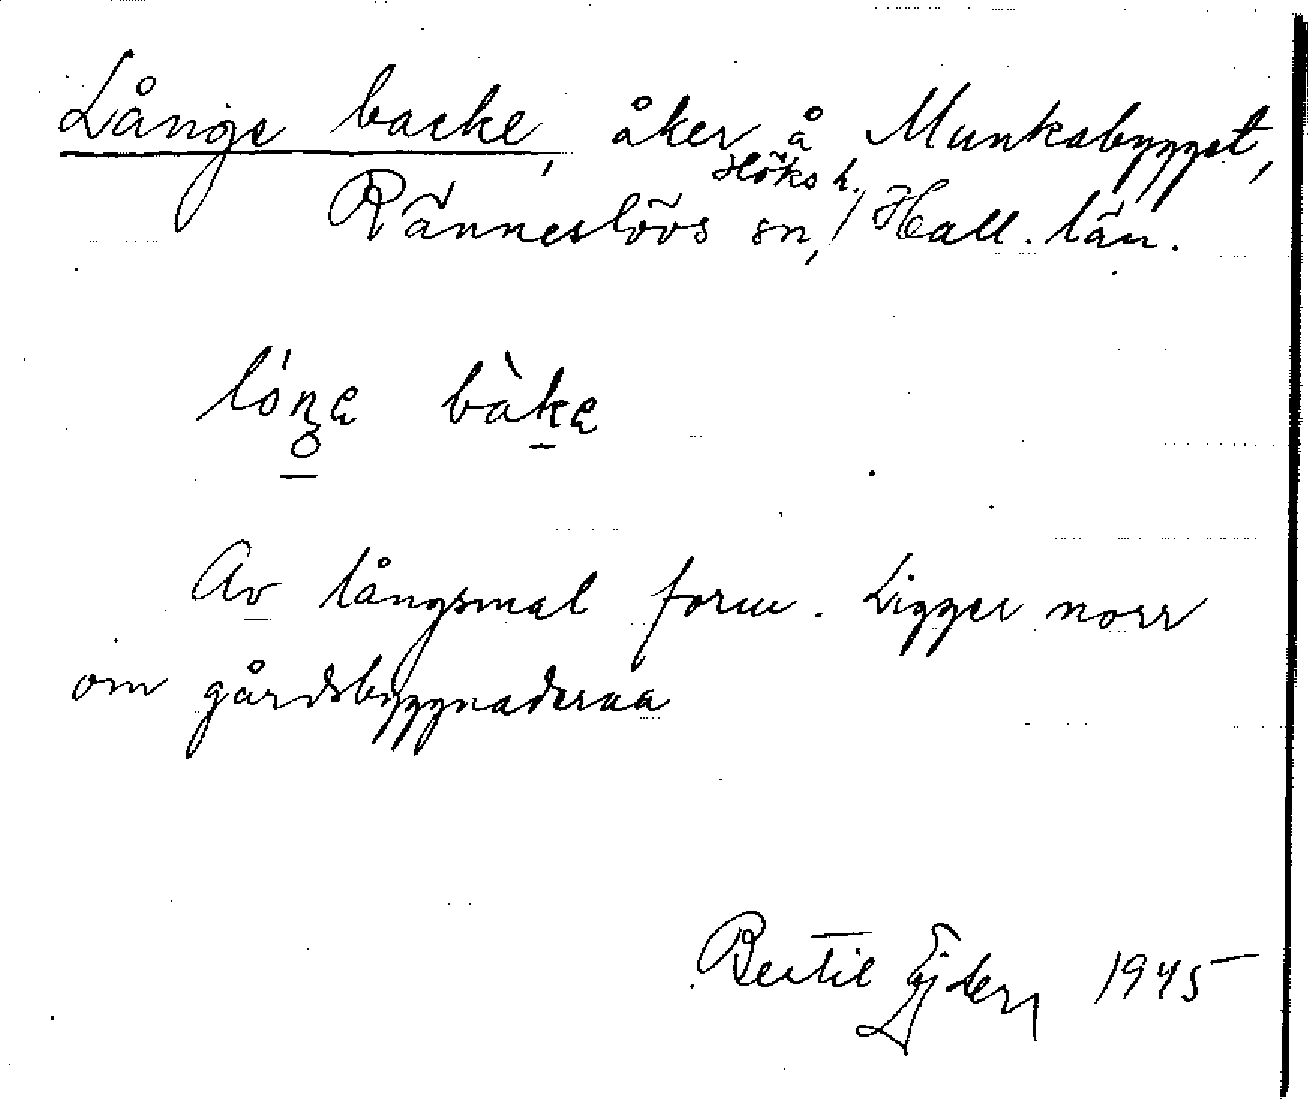 Långe backe, åker å Munkabygget,
Ränneslövs sn, Höks h., Hall. län.
Av långsmal form. Ligger norr
om gårdsbyggnaderna
Bertil Ejder 1945